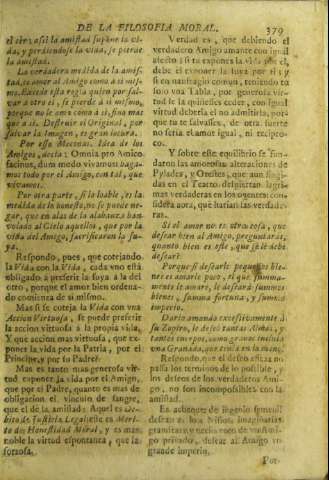 DE LA FILOSOFIA MORAL.
379
el ser; assi la amistad supone la vi-
da, y perdiendose la vida, se pierde
la amistad.
La verdadera medida de la amis-
tad, es amar al Amigo como a si mis-
mo. Excede esta regla quien por sal-
var a otro el, se pierde a si mismo,
porque no le ama como a si, sino mas
que a si. Destruir el Original, por
salvar la Imagen, es gran locura.
Por esso Mecenas, Idea de los
Amigos, decia: Omnia pro Amico
faciamus, dum modo vivamus: haga-
mos todo por el Amigo, con tal, que
vivamos.
Por otra parte, si lo loable, es la
medida de lo honesto, no se puede ne-
gar, que en alas de la alabanza han
volado al Cielo aquellos, que por la
vida del Amigo, sacrificaron la su-
ya.
Respondo, pues, que cotejando
la Vida con la Vida, cada uno está
obligado a preferir la suya a la del
otro, porque el amor bien ordena-
do comienza de si mismo.
Mas si se coteja la Vida con una
Accion Virtuosa, se puede preferir
la accion virtuosa à la propia vida.
Y que accion mas virtuosa, que ex-
poner la vida por la Patria, por el
Principe, y por su Padre?
Mas es tanto mas generosa vir-
tud exponer la vida por el Amigo,
que por el Padre, quanto es mas de
obligacion el vinculo de sangre,
que el de la amistad: Aquel es De-
bito de Justicia Legal; este es Meri-
to de Honestidad Moral, y es mas
noble la virtud espontanea, que la
forzosa.
Verdad es, que debiendo el
verdadero Amigo amante con igual
afecto; si tu expones la vida por el,
debe el exponer la suya por ti; y
si en naufragio comun, teniendo tu
solo una Tabla, por generosa vir-
tud se la quisiesses ceder, con igual
virtud debería el no admitirla, por-
que tu te salvasses, de otra suerte
no sería el amor igual, ni recipro-
co.
Y sobre este equilibrio se fun-
daron las amorosas alteraciones de
Pylades, y Orestes, que aun fingi-
das en el Teatro, despiertan lagri-
mas verdaderas en los oyentes: con-
sidera aora, què harian las verdade-
ras.
Si el amor no es otra cosa, que
desear bien al Amigo, preguntarás,
quanto bien es este, que se le debe
desear?
Porque si desearle pequeño bie-
nes es amarle poco, el que summa-
mente le amare, le deseará summos
bienes, summa fortuna, y summo
imperio.
Dario amando excessivamente a
su Zopiro, le deseó tantas Almas, y
tantos cuerpos, como granos incluia
una Granada, que tenia en la mano.
Respondo, que el deseo eficaz no
passa los terminos de lo possible, y
los deseos de los verdaderos Ami-
gos, no son incompossibles con la
amistad.
Es achaque de ingenio
desear
grandezas; y necio voto de
go privado, desear al Amigo un
grande imperio.
Por-